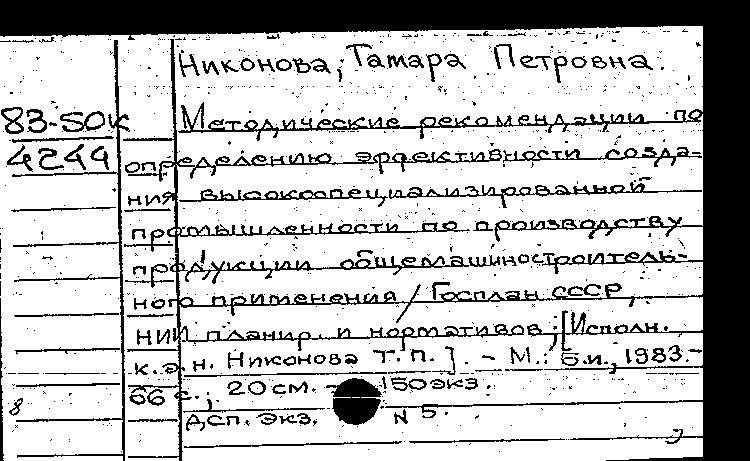 Никонова, Тамара Петровна.
83-50к Методические рекомендации по
4244 определению эффективности созда-
ния высокоспециализированной
промышленности по производству
продукции общемашиностроитель-
ного применения / Госплан СССР,
НИИ планир. и нормативов; [Исполн.
к.э.н. Никонова Т.П.]. - М.: Б.и., 1983.-
66 с.; 20 см. - 150 экз.
8 Дсп. Экз. N 5.